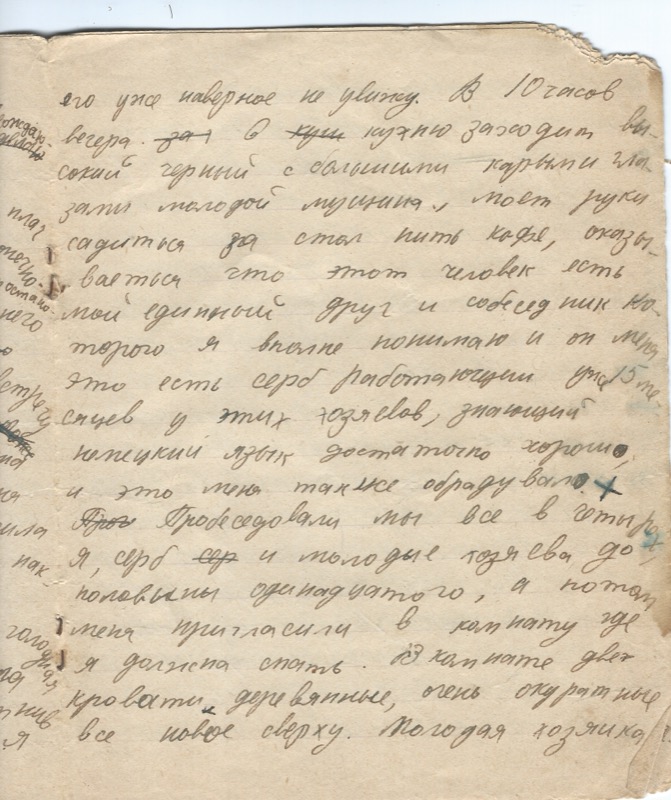 его уже наверное не увижу. В 10 часов
вечера. зат в кухн кухню заходит вы-
сокий черный с большими карыми гла-
зами молодой мущина, моет руки
садиться за стол пить кофе, оказы-
ваеться что этот человек есть
мой единный друг и собеседник ко-
торого я вполне понимаю и он меня
это есть серб работающий уже 15 ме
сяцев у этих хозяевов, знающий
немецкий язык достаточно хорошо,
и это меня также обрадувало.
Проч Пробеседовали мы все в четыре
я, серб сер и молодые хозяева до
половыны одинадцатого, а потом
меня пригласили в комнату где
я должна спать. В комнате две
кровати, деревянные, очень окуратные
все новое сверху. Молодая хозяйка